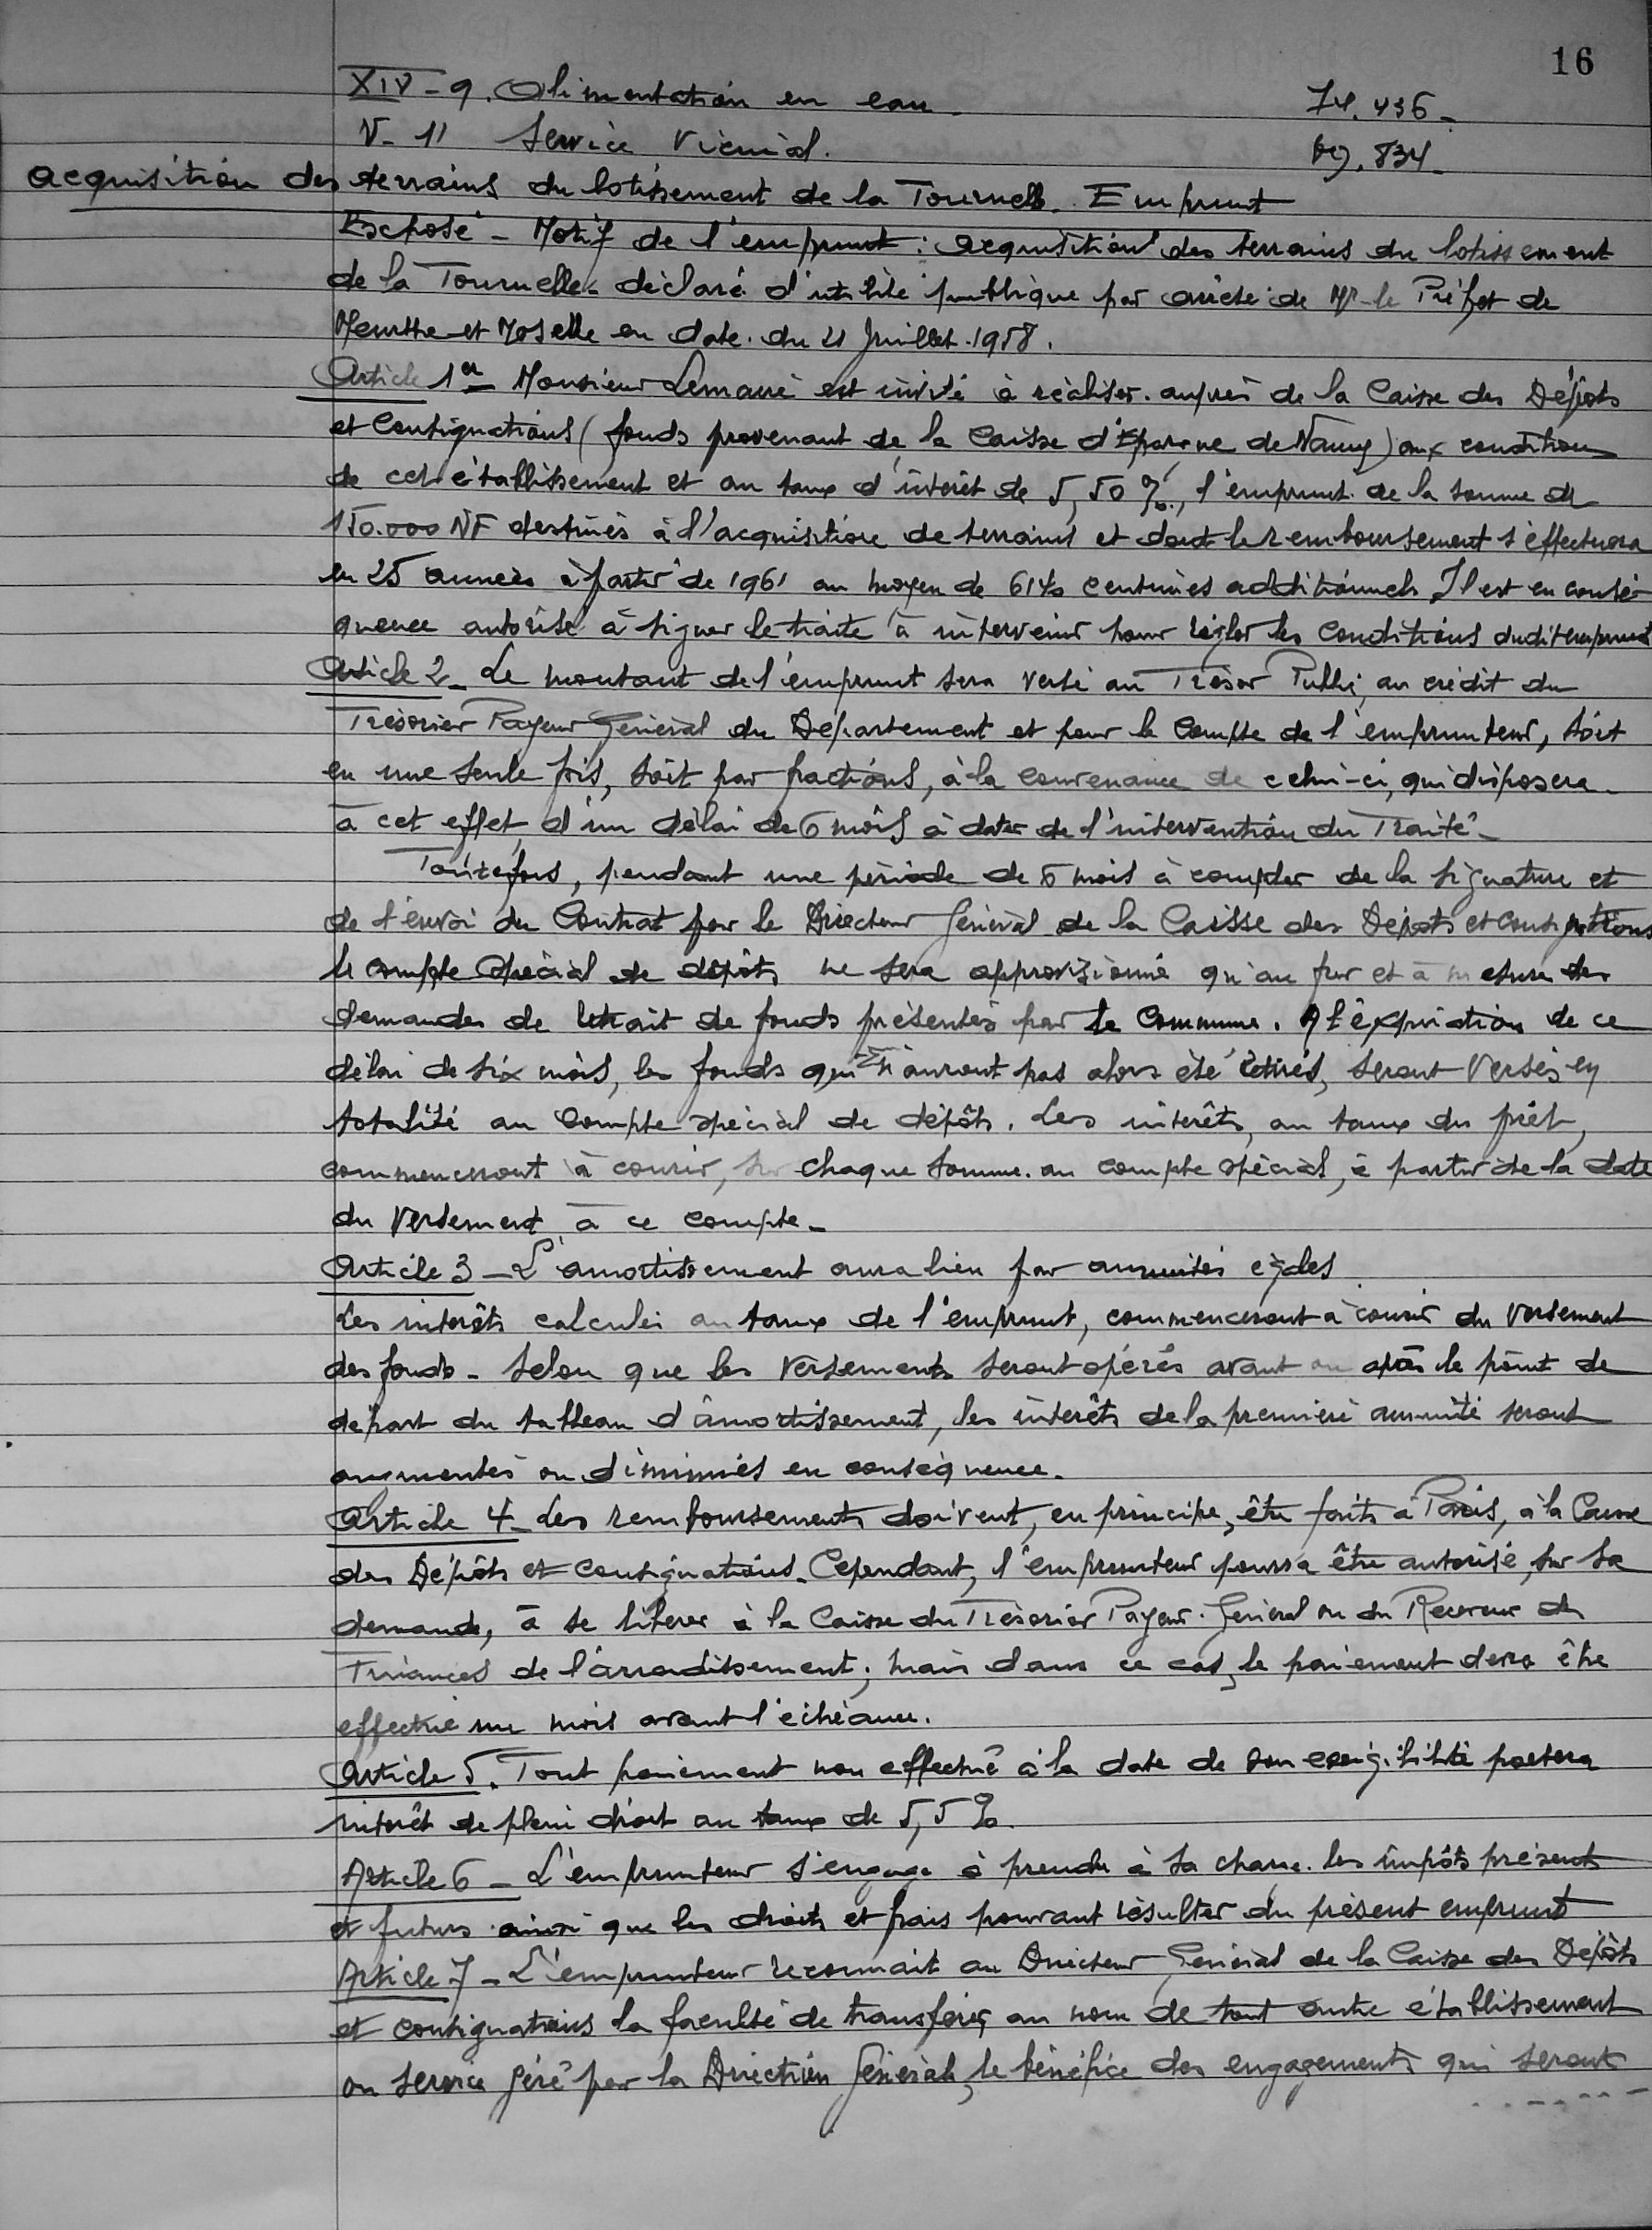 16
XIV - 9. Alimentation en eau 74.436_
V - 11 Service Vicinal. 69.834_
acquisition des terrains du lotissement de la Tournelle. Emprunt
Exposé - Motif de l'emprunt : acquisition des terrains du lotissement
de la Tournelle - déclaré d'utilité publique par arrêté de Mr le Préfet de
Meurthe et Moselle en date du 21 Juillet 1958.
Article 1er - Monsieur Lemarié est invité à réaliser auprès de la Caisse des Dépôts
et Consignations (fonds provenant de la Caisse d'Epargne de Nancy) aux conditions
de cet établissement et au taux d'intérêt de 5,50 %, l'emprunt de la somme de
150.000 NF destinés à l'acquisition de terrains et dont le remboursement s'effectuera
en 25 années à partir de 1961 au moyen de centimes additionnels. Il est en consé-
quence autorisé à signer le traité à intervenir pour régler les conditions dudit emprunt
Article 2 - Le montant de l'emprunt sera versé au Trésor Public, au crédit du
Trésorier Payeur Général du Département et pour le compte de l'emprunteur, soit
en une seule fois, soit par fractions, à la convenance de celui-ci, qui disposera
à cet effet, d'un délai de 6 mois à dater de l'intervention du Traité -
Toutefois, pendant une période de 6 mois à compter de la signature et
de l'envoi du Contrat par le Directeur Général de la Caisse des Dépôts et Consignations
le compte spécial de dépôts ne sera approvisionné qu'au fur et à mesure des
demandes de retrait de fonds présentés par la Commune. A l'expiration de ce
délai de six mois, les fonds qui n'auront pas alors été retirés, seront versés en
totalité au compte spécial de dépôts. Les intérêts, au taux du prêt,
commenceront à courir, sur chaque somme au compte spécial, à partir de la date
du versement à ce compte -
Article 3 - L'amortissement aura lieu par annuités égales
Les intérêts calculés au taux de l'emprunt, commenceront à courir du versement
des fonds - Selon que les versements seront opérés avant ou après le point de
départ du tableau d'amortissement, les intérêts de la première annuité seront
augmentés ou diminués en conséquence.
Article 4 - Les remboursements doivent, en principe, être faits à Paris, à la Caisse
des Dépôts et Consignations. Cependant, l'emprunteur pourra être autorisé, sur sa
demande, à se libérer à la Caisse du Trésorier Payeur Général ou du Receveur des
Finances de l'arrondissement; mais dans ce cas, le paiement devra être
effectué un mois avant l'échéance.
Article 5. Tout paiement non effectué à la date de son exigibilité portera
intérêt de plein droit au taux de 5,5 %.
Article 6 - L'emprunteur s'engage à prendre à sa charge les impôts présents
et futurs ainsi que les droits et frais pouvant résulter du présent emprunt
Article 7 - L'emprunteur reconnait au Directeur Général de la Caisse des Dépôts
et consignations la faculté de transférer au nom de tout autre établissement
ou service géré par la Direction Générale, le bénéfice des engagements qui seront